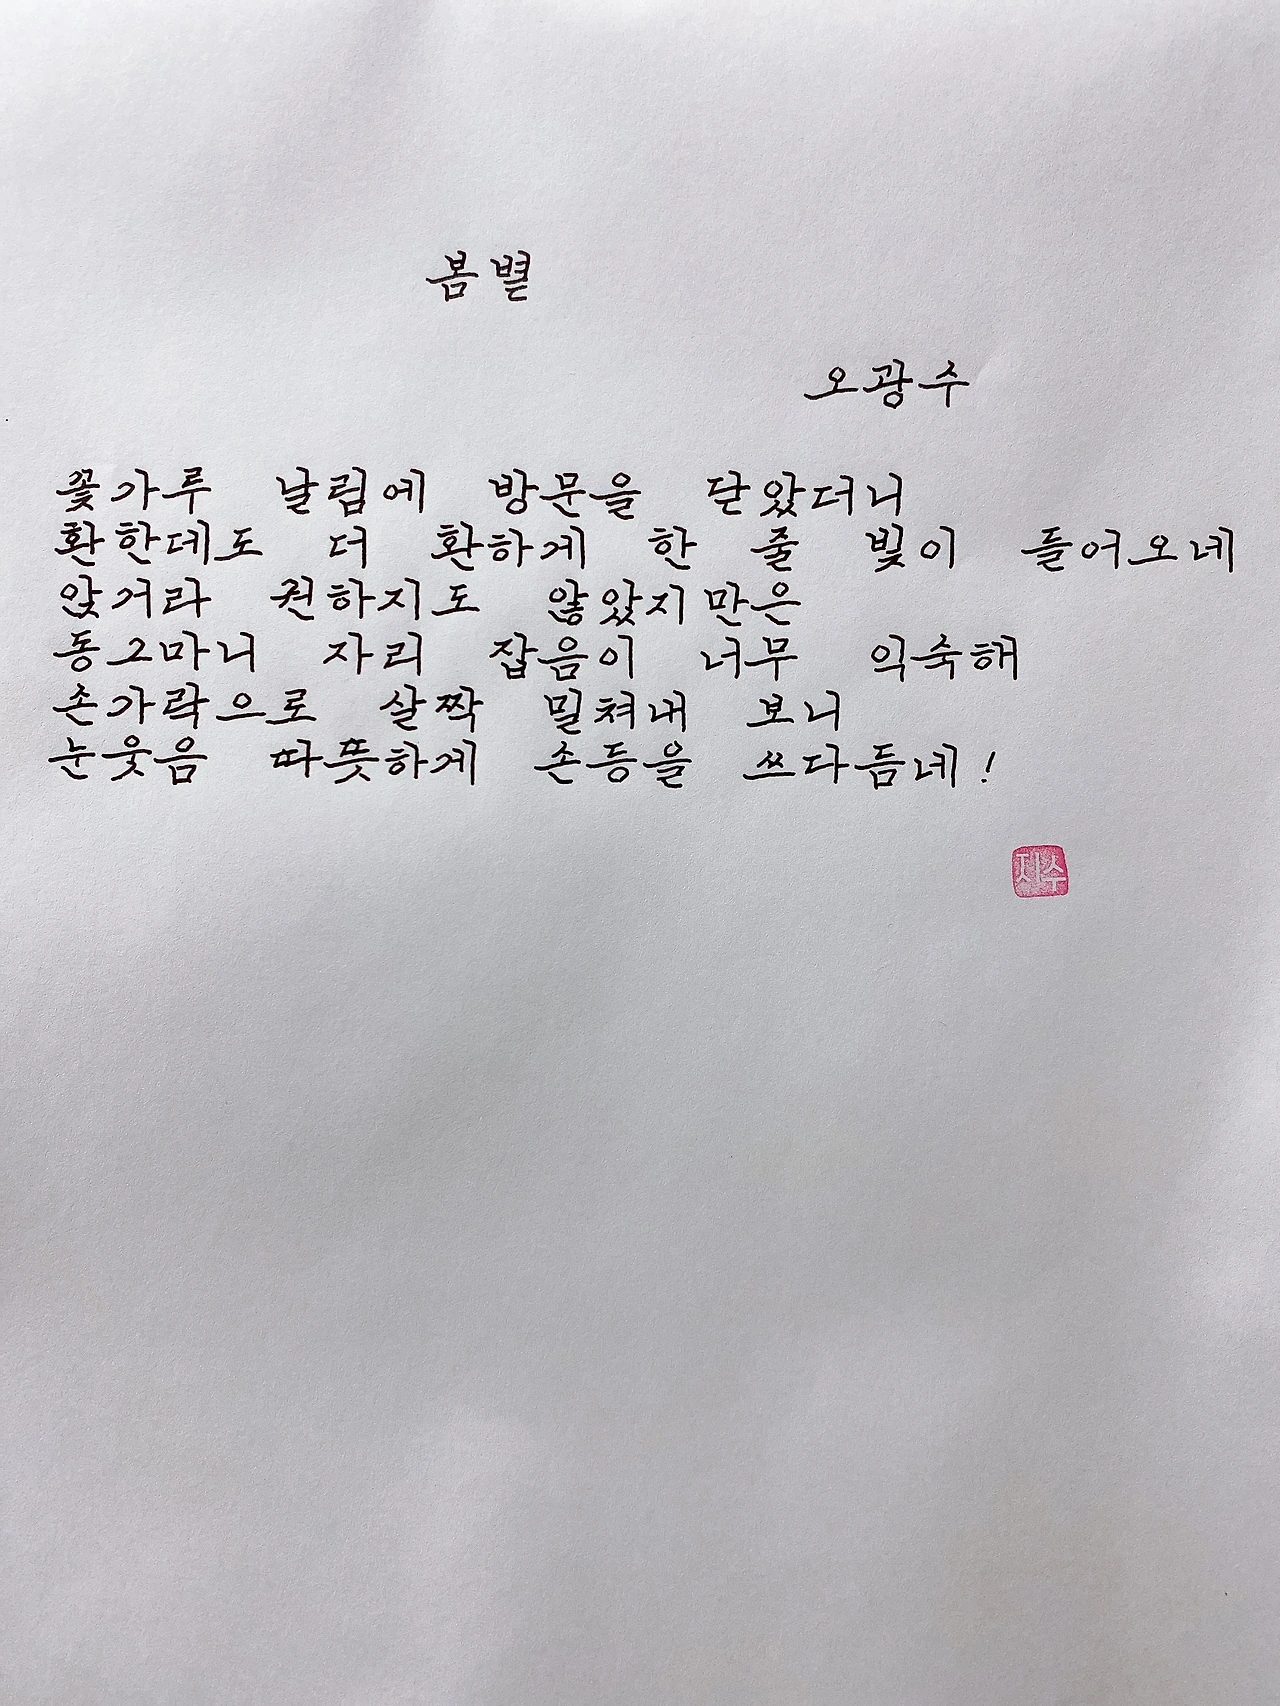 봄볕
오광수
꽃가루 날림에 방문을 닫았더니
환한데도 더 환하게 한 줄 빛이 들어오네
앉거라 권하지도 않았지만은
동그마니 자리 잡음이 너무 익숙해
손가락으로 살짝 밀쳐내 보니
눈웃음 따뜻하게 손등을 쓰다듬네!